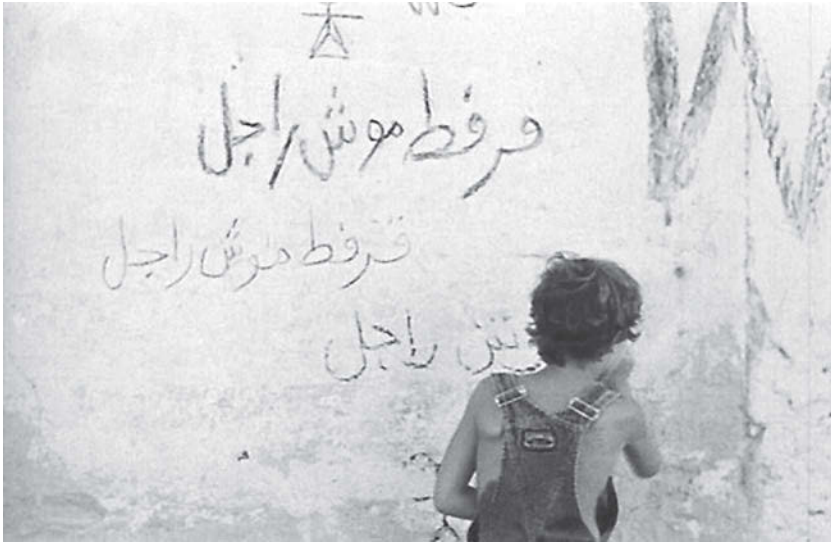 فرفط موش راجل
فرفط موش راجل
راجل